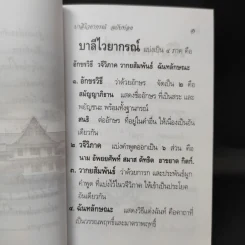 บาลีไวยากรณ์
บาลีไวยากรณ์ แบ่งเป็น ๔ ภาค คือ
อักขรวิธี วจีวิภาค วากยสัมพันธ์ ฉันทลักษณะ
๑. อักขรวิธี ว่าด้วยอักษร จัดเป็น ๒ คือ
สมัญญาภิธาน แสดงชื่ออักษร ที่เป็นสระ และ
พยัญชนะ พร้อมทั้งฐานกรณ์
สนธิ ต่ออักษร ที่อยู่ในคำอื่น ให้เนื่องเป็นอัน
เดียวกัน
๒ วจีวิภาค แบ่งคำพูดออกเป็น ๖ ส่วน คือ
นาม อัพยยศัพท์ สมาส ตัทธิต อาขยาต กิตก์.
๓. วากยสัมพันธ์ ว่าด้วยการก และประพันธ์ผูก
คำพูด ที่แบ่งไว้ในวจีวิภาค ให้เข้าเป็นประโยค
เดียวกัน
๔ ฉันทลักษณะ แสดงวิธีแต่งฉันท์ คือคาถาที่
เป็นวรรณพฤทธิ์และมาตราพฤทธิ์